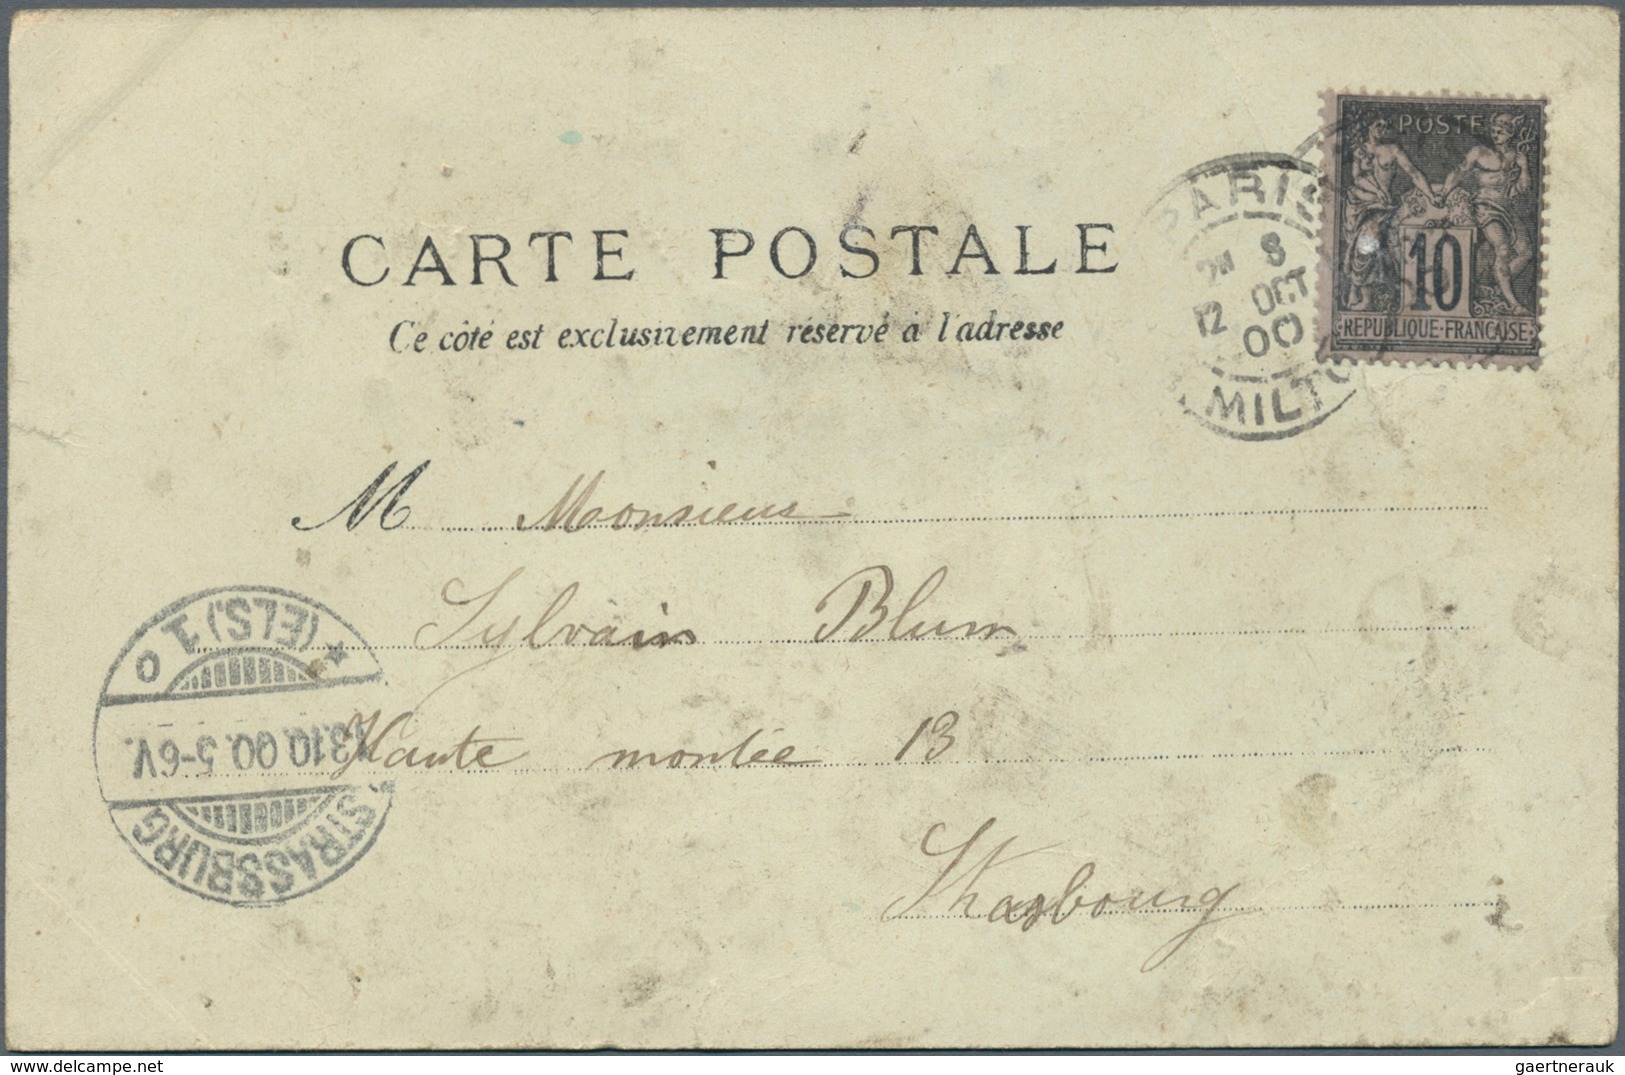 POSTE
10
RÉPUBLIQUE-FRANCAISE
PARIS
8
12 OCT
00
MILTO
CARTE POSTALE
Ce côté est exclusivement réservé à l'adresse
M Monsieur
Sylvain Blum
Haute montée 13
Strasbourg
STRASSBURG
13.10.00.5-6V.
* (ELS.) 1 o
gaertnerauk